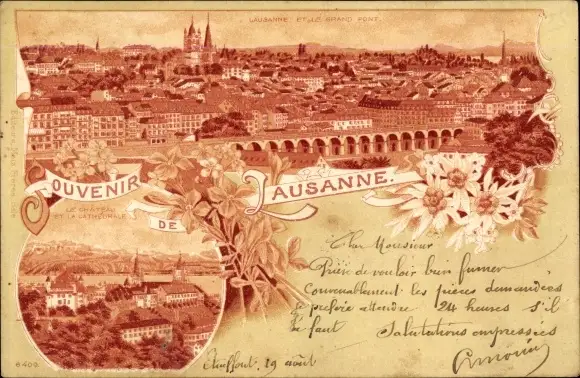 LAUSANNE ET LE GRAND PONT
SOUVENIR
DE
LAUSANNE.
LE CHÂTEAU
ET LA CATHÉDRALE
Cher Monsieur
Prière de vouloir bien fumer
Convenablement les pièces demandées
je préfère attendre 24 heures s'il
le faut Salutations empressées
19 août
6409